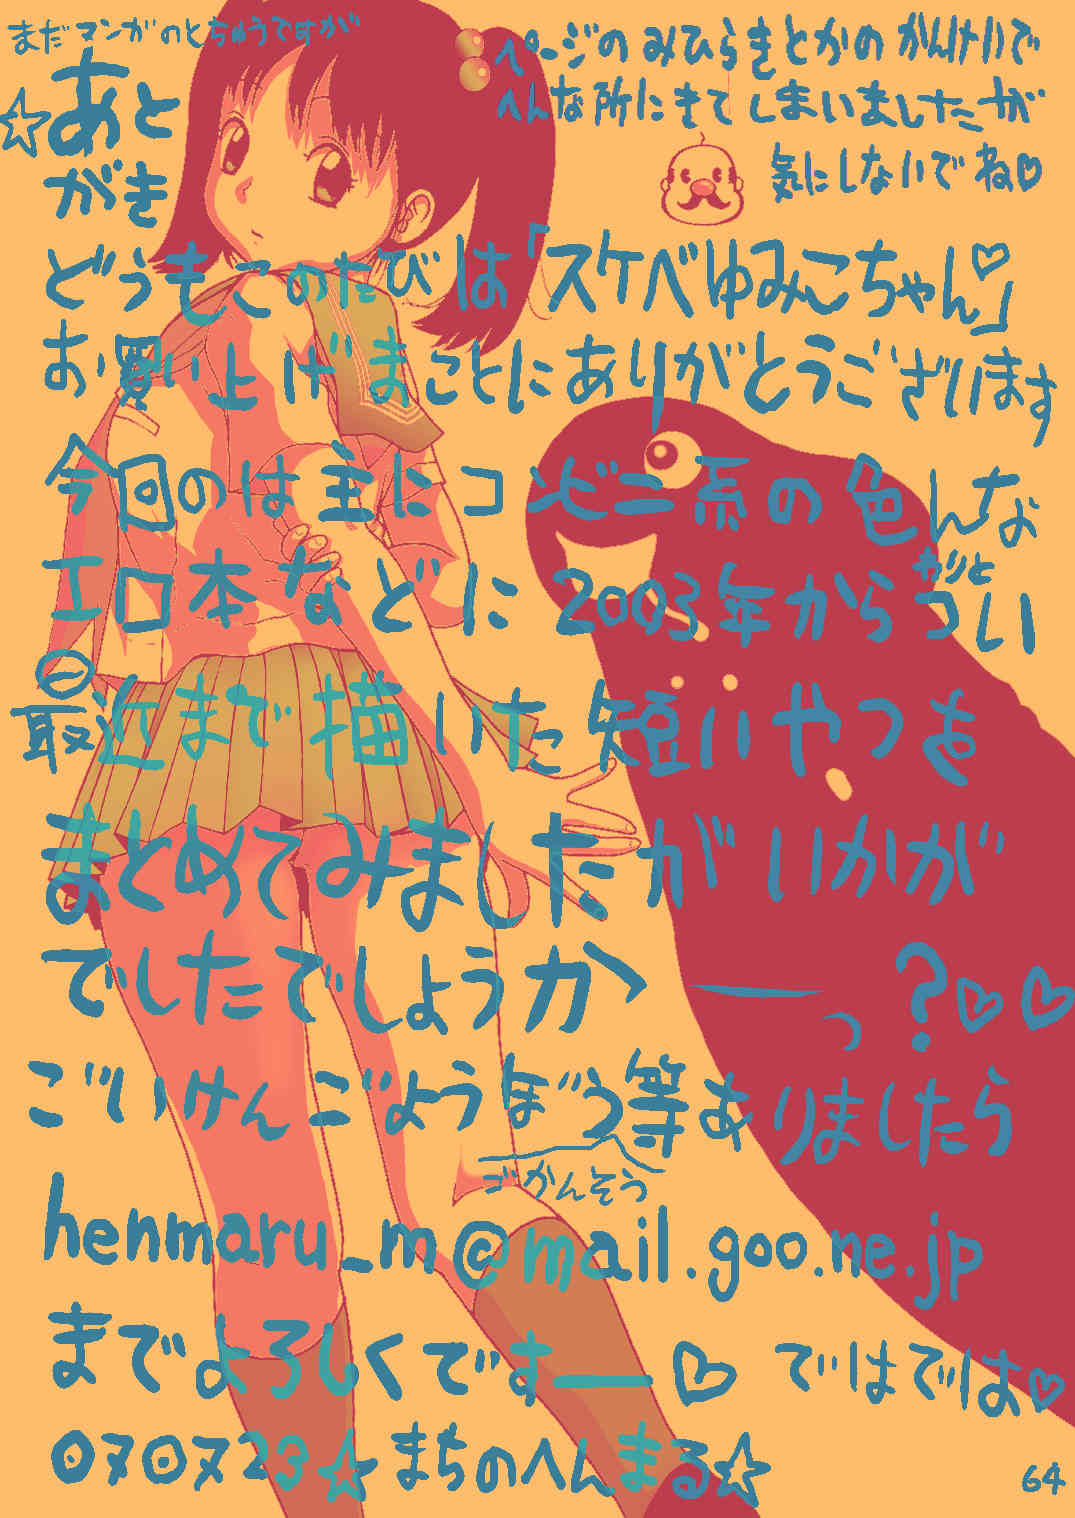 まだマンガのとちゅうですが
ページのみひらきとかのかんけいで
へんな所にきてしまいましたが
気にしないでね♡
☆あとがき
どうもこのたびは「スケベゆみこちゃん♡」
お買い上げまことにありがとうございます
今回のは主にコンビニ系の色んな
エロ本などに2003年からつい
最近まで描いた短いやつも
まとめてみましたがいかが
でしたでしょうかーっ?♡♡
ごいけんごようぼう等ありましたら
ごかんそう
henmaru_m@mail.goo.ne.jp
までよろしくですー♡ ではでは♡
070723☆まちのへんまる☆
64